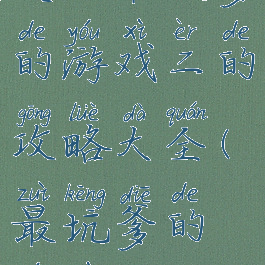 de yóu xì èr de
的游戏二的
gōng lüè dà quán
攻略大全(
zuì kēng diē de
最坑爹的